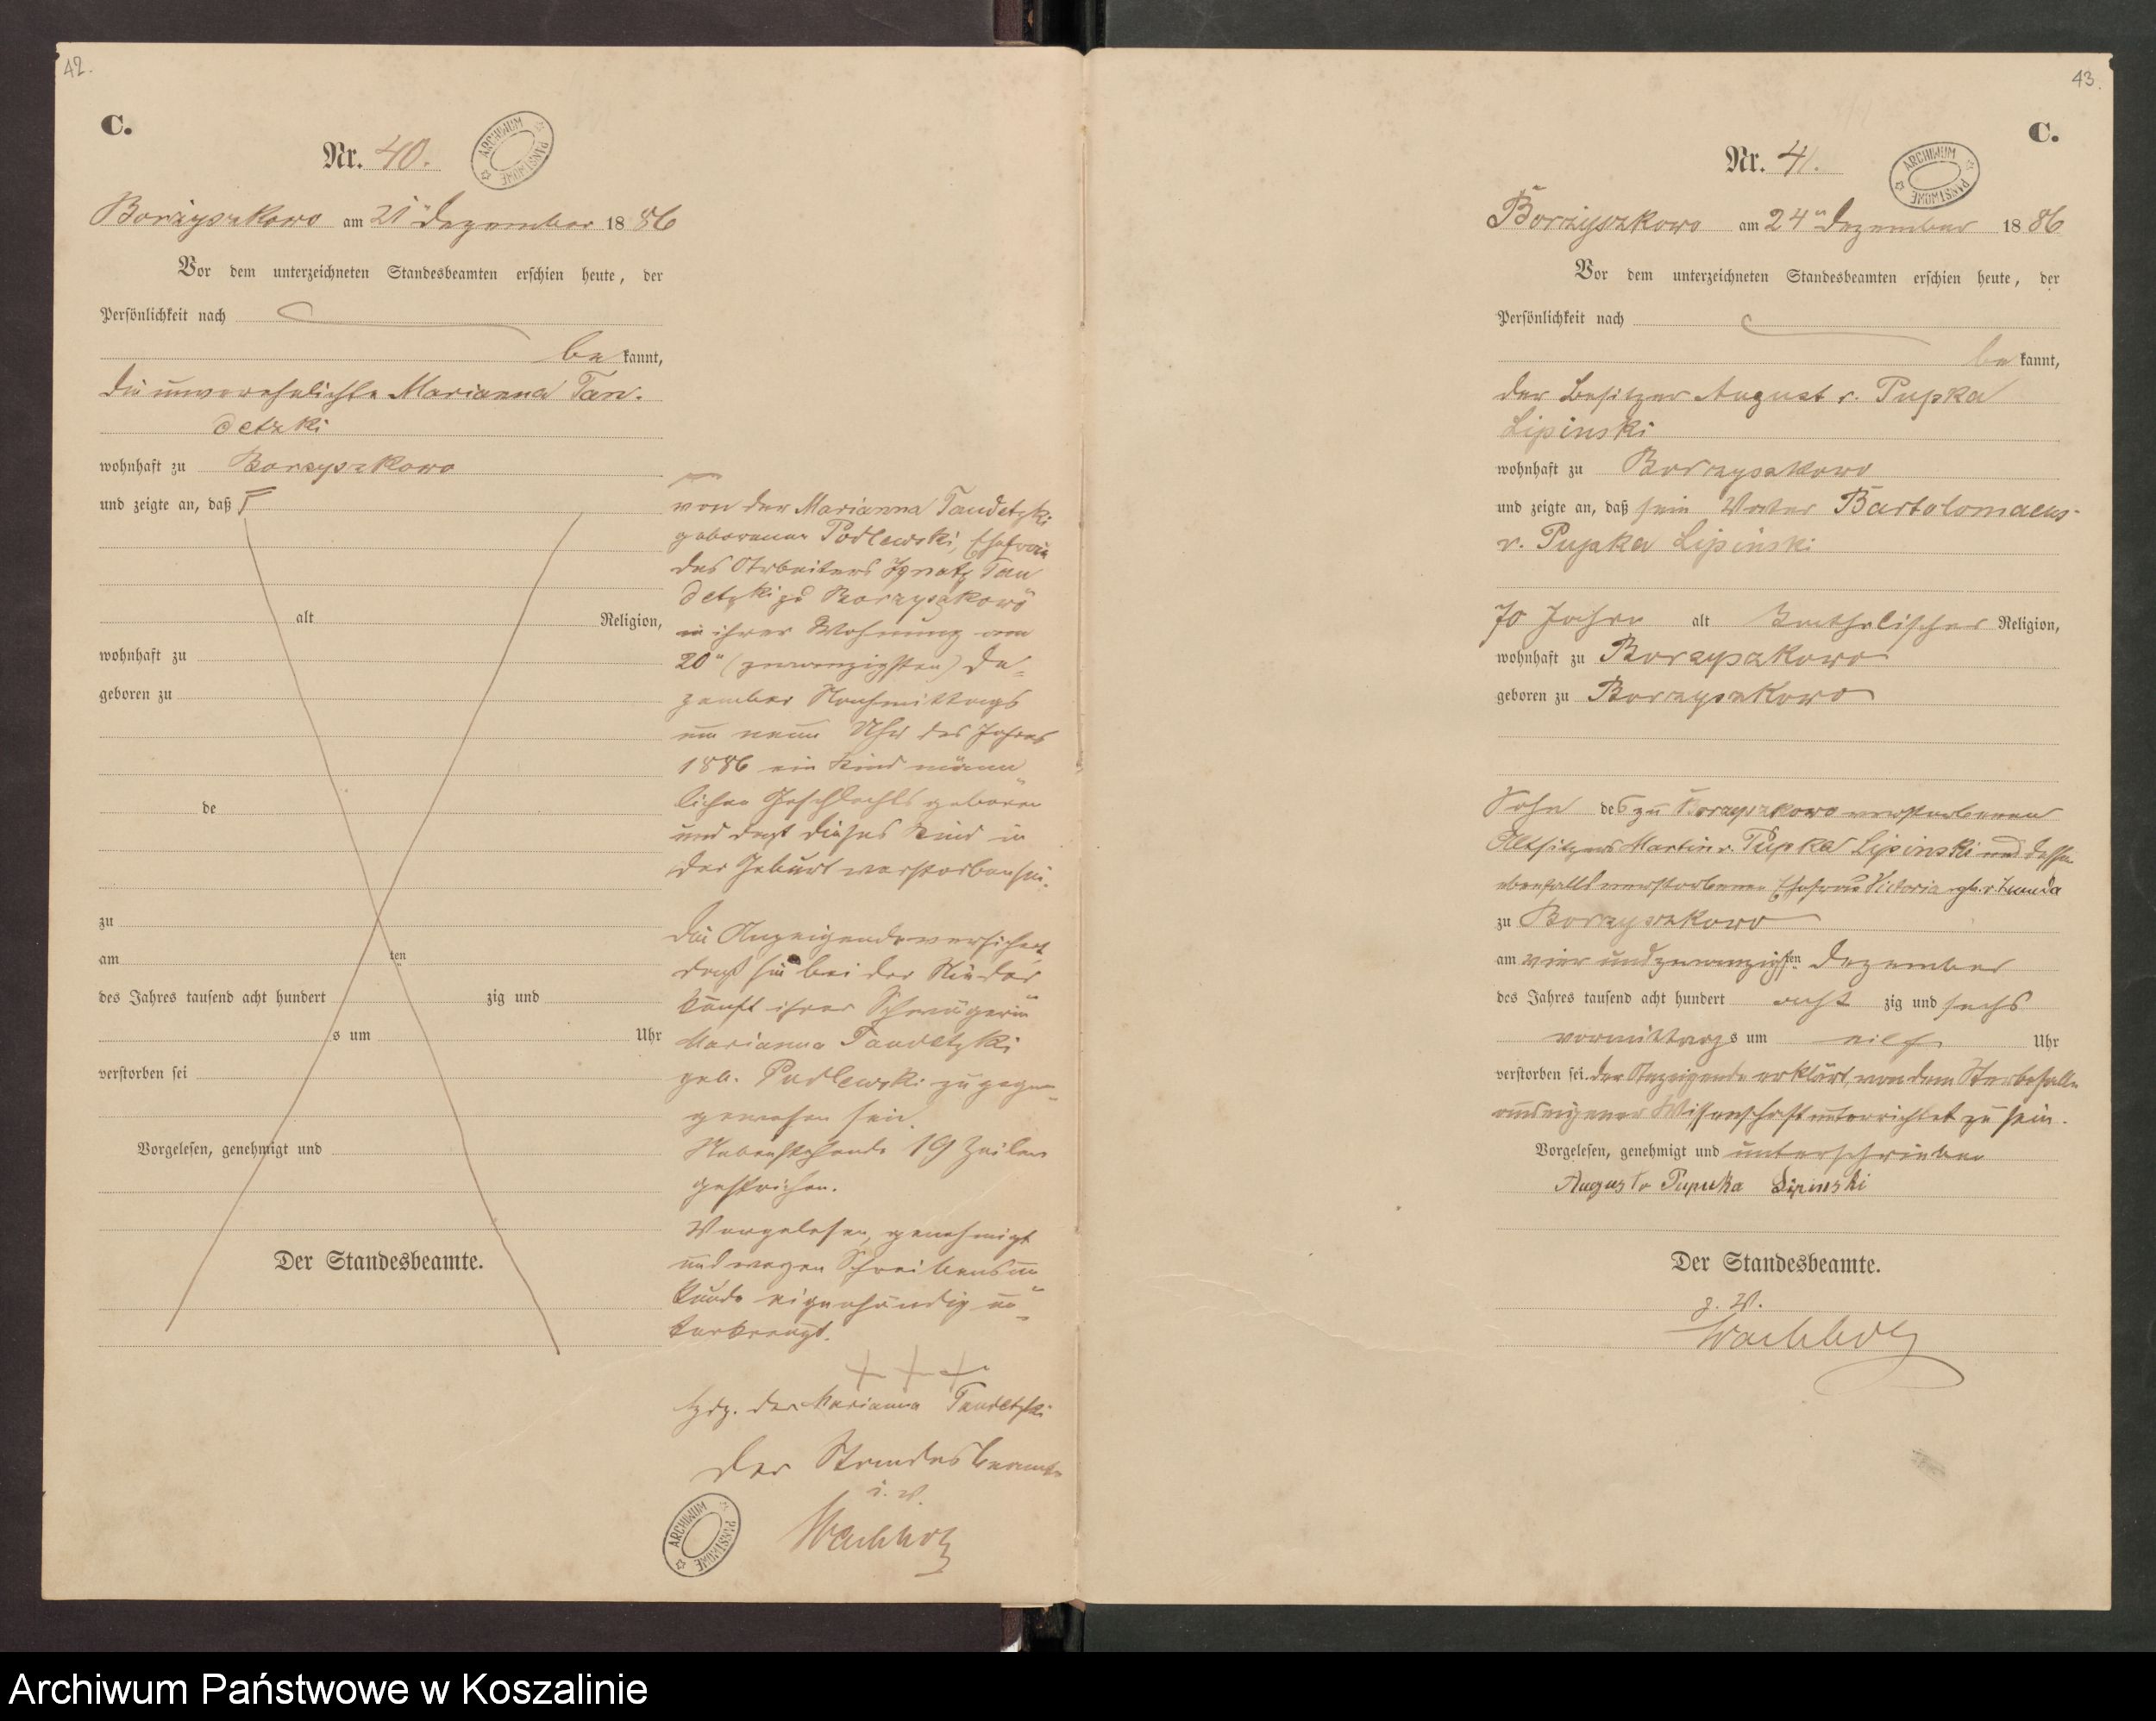 42.
C.
Nr. 40.
ARCHIWUM PAŃSTWOWE
Borzyszkowo am 21ⁿ Dezember 1886
Vor dem unterzeichneten Standesbeamten erschien heute, der
Persönlichkeit nach
be kannt,
die unverehelichte Marianna Tan-
detzki
wohnhaft zu Borzyszkowo
und zeigte an, daß
alt Religion,
wohnhaft zu
geboren zu
de
zu
am ten
des Jahres tausend acht hundert zig und
s um Uhr
verstorben sei
Vorgelesen, genehmigt und
Der Standesbeamte.
von der Marianna Tandetzki
geborenen Podlewski, Ehefrau
des Arbeiters Ignatz Tan
detzki zu Borzyszkowo
in ihrer Wohnung am
20ⁿ (zwanzigsten) De=
zember Nachmittags
um neun Uhr des Jahres
1886 ein Kind männ
lichen Geschlechts geboren
und daß dieses Kind in
der Geburt verstorben sei.
Die Anzeigende versichert
daß sie bei der Nieder
kunft ihrer Schwägerin
Marianna Tandetzki
geb. Podlewski zugegen
gewesen sei.
Nebenstehende 19 Zeilen
gestrichen.
Vorgelesen, genehmigt
und wegen Schreibensun
kunde eigenhändig un
terkreuzt.
+ + +
Hdz. der Marianna Tandetzki
Der Standesbeamte
i. V.
Wachholz
ARCHIWUM PAŃSTWOWE
43.
C.
Nr. 41.
ARCHIWUM PAŃSTWOWE
Borzyszkowo am 24ⁿ Dezember 1886
Vor dem unterzeichneten Standesbeamten erschien heute, der
Persönlichkeit nach
be kannt,
der Besitzer August v. Pupka
Lipinski
wohnhaft zu Borzyszkowo
und zeigte an, daß sein Vater Bartolomaeus
v. Pupka Lipinski
70 Jahre alt katholischer Religion,
wohnhaft zu Borzyszkowo
geboren zu Borzyszkowo
Sohn des zu Borzyszkowo verstorbenen
Altsitzers Martin v. Pupka Lipinski und dessen
ebenfalls verstorbenen Ehefrau Victoria geb. v.
zu Borzyszkowo
am vier und zwanzigsten Dezember
des Jahres tausend acht hundert acht zig und sechs
vormittags um eilf Uhr
verstorben sei. Der Anzeigende erklärt, von dem Sterbefalle
aus eigener Wissenschaft unterrichtet zu sein.
Vorgelesen, genehmigt und unterschrieben
August v Pupuka Lipinski
Der Standesbeamte.
i. V.
Wachholz
Archiwum Państwowe w Koszalinie